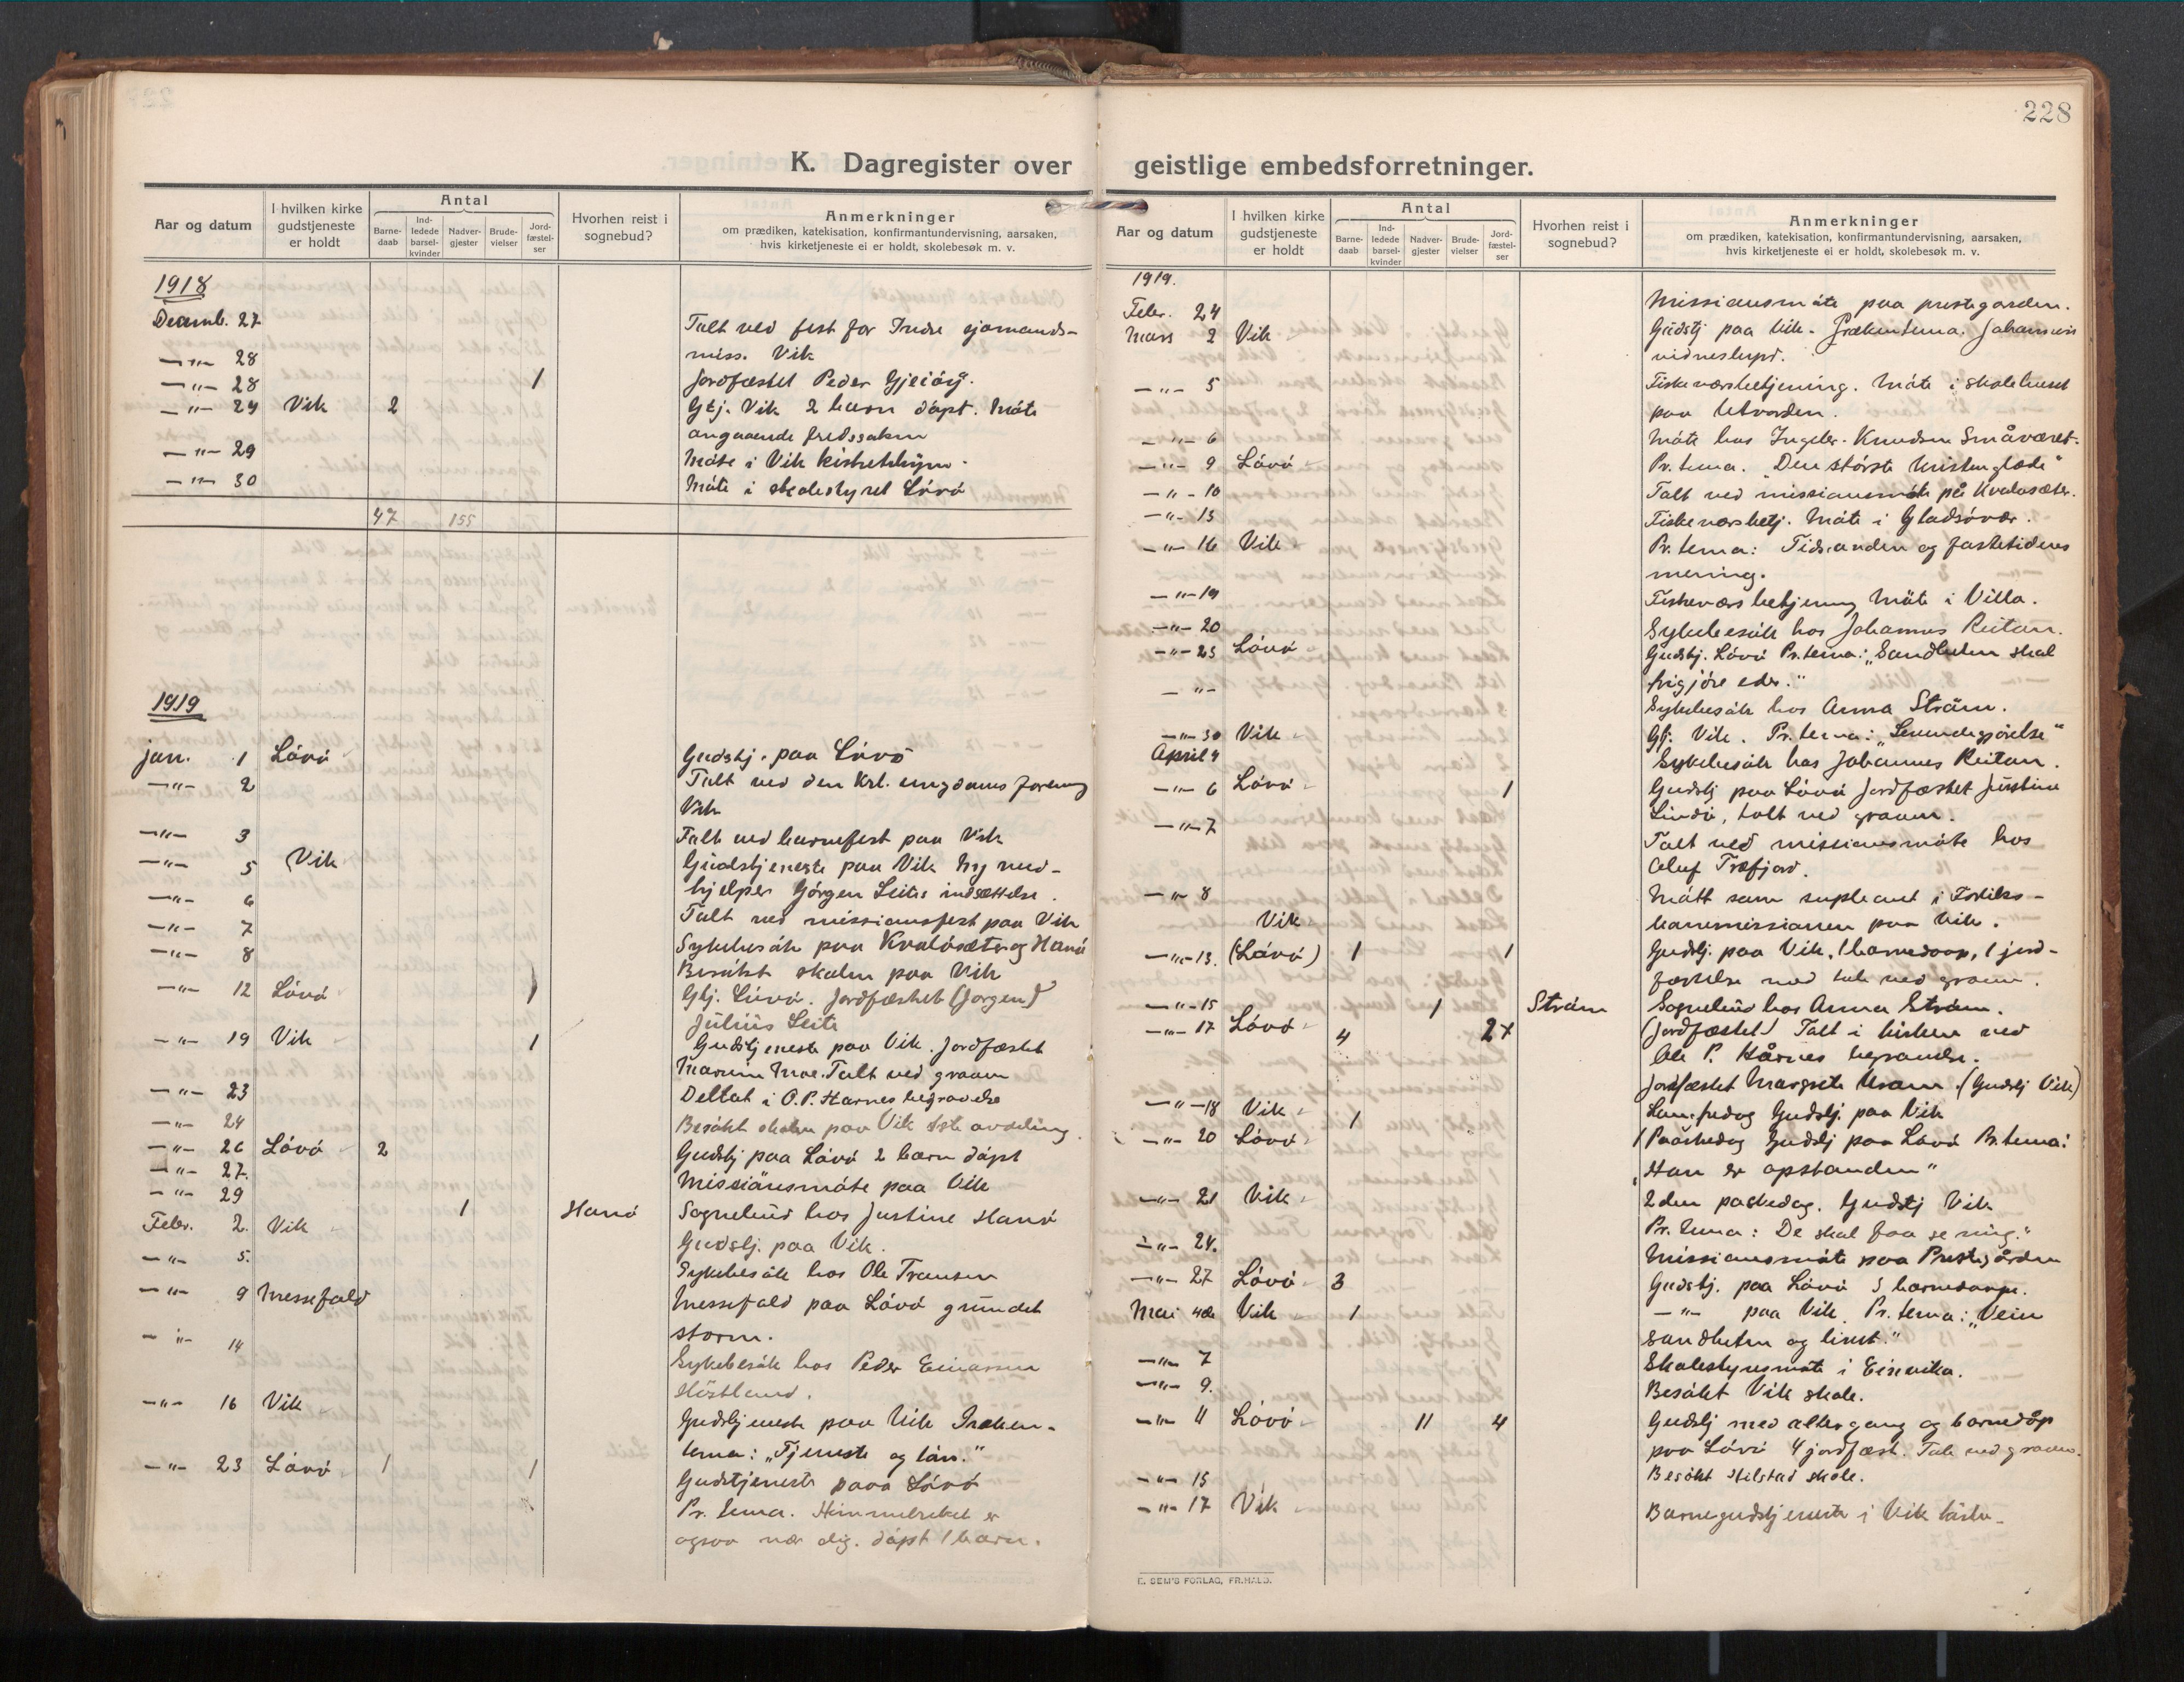 228
K. Dagregister over geistlige embedsforretninger.
Aar og datum
I hvilken kirke gudstjeneste er holdt
Antal
Barne-daab
Ind-ledede barsel-kvinder
Nadver-gjester
Brude-vielser
Jord-fæstel-ser
Hvorhen reist i sognebud?
Anmerkninger
om prædiken, katekisation, konfirmantundervisning, aarsaken,
hvis kirketjeneste ei er holdt, skolebesøk m. v.
1918
Decemb. 27 Talt ved fest for Indre sjømands-
—"— 28 miss. Vik
—"— 28 1 Jordfæstet Peder
—"— 29 Vik 2 Gtj. Vik 2 barn døpt. Møte
angaaende fredssaken
—"— 29 Møte i Vik
—"— 30 Møte i skolestyret Løvø
47 155
1919
jan. 1 Løvø Gudstj. paa Løvø
—"— 2 Talt ved den Krl. ungdoms forening
Vik
—"— 3 Talt ved barnefest paa Vik
—"— 5 Vik Gudstjeneste paa Vik ny med-
hjelper Jørgen Leites indsættelse.
—"— 6 Talt ved missionsfest paa Vik
—"— 7 Sykebesøk paa Kvaløsæter og Hanø
—"— 8 Besøkt skolen paa Vik
—"— 12 Løvø 1 Gtj. Løvø. Jordfæstet (Jørgen)
Julius Leite
—"— 19 Vik 1 Gudstjeneste paa Vik. Jordfæstet
Moe. Talt ved graven
—"— 23 Deltat i O.P. Harnes begravelse
—"— 24 Besøkt skolen paa Vik avdeling.
—"— 26 Løvø 2 Gudstj paa Løvø 2 barn døpt
—"— 27. Missionsmøte paa Vik
—"— 29 1 Hanø Sognebud hos Justine Hanø
Febr. 2. Vik Gudstj. paa Vik.
—"— 5. Sykebesøk hos Ole Fransen
—"— 9 Messefald Messefald paa Løvø grundet
storm.
—"— 14 Sykebesøk hos Peder Einarsen
—"— 16 Vik Gudstjeneste paa Vik Præken-
tema: „Tjeneste og løn."
—"— 23 Løvø 1 1 Gudstjeneste paa Løvø
Pr. tema. Himmelriket er
ogsaa nær dig. døpt 1 barn.
Aar og datum
I hvilken kirke gudstjeneste er holdt
Antal
Barne-daab
Ind-ledede barsel-kvinder
Nadver-gjester
Brude-vielser
Jord-fæstel-ser
Hvorhen reist i sognebud?
Anmerkninger
om prædiken, katekisation, konfirmantundervisning, aarsaken,
hvis kirketjeneste ei er holdt, skolebesøk m. v.
1919.
Febr. 24 Missionsmøte paa prestegarden.
Mars 2 Vik Gudstj paa Vik. Prækentema. Johannes
vidnesbyrd.
—"— 5 Fiskeværsbetjening. Møte i skolehuset
paa
—"— 6 Møte hos Ingebr. Knudsen Småværet.
—"— 9 Løvø Pr. tema. "Den største kristenglæde"
—"— 10 Talt ved missionsmøte på Kvaløsæter.
—"— 13 Fiskeværsbetj. Møte i Gladsøvær.
—"— 16 Vik Pr. tema: Tidsanden og fastetidens
mening.
—"— 19 Fiskeværsbetjening Møte i Villa.
—"— 20 Sykebesøk hos Johannes Reitan.
—"— 23 Løvø Gudstj. Løvø Pr. tema: „Sandheten skal
frigjøre eder."
—"— Sykebesøk hos Anna Strøm.
—"— 30 Vik Gtj. Vik. Pr. tema:
April 4 Sykebesøk hos Johannes Reitan.
—"— 6 Løvø 1 Gudstj paa Løvø Jordfæstet Justine
Lindø, talt ved graven.
—"— 7 Talt ved missionsmøte hos
Oluf Træfjord.
—"— 8 Møtt som supleant i
paa Vik.
Vik
—"— 13. (Løvø) 1 1 Gudstj. paa Vik, 1 barnedaap, 1 jord-
fæstelse med tale ved graven.
—"— 15 1 Strøm Sognebud hos Anna Strøm.
—"— 17 Løvø 4 2+ (Jordfæstet) Talt i kirken ved
Ole P. Hårnes begravelse.
Jordfæstet Margrete (Gudstj Vik)
—"— 18 Vik 1 Langfredag Gudstj. paa Vik
—"— 20 Løvø 1 Paaskedag Gudstj paa Løvø Pr. tema:
„Han er opstanden"
—"— 21 Vik 2den paskedag. Gudstj Vik
Pr. tema: De skal faa se mig."
—"— 24. Missionsmøte paa Prestegården
—"— 27 Løvø 3 Gudstj. paa Løvø 3 barnedaap.
Mai 4de Vik 1 —"— paa Vik. Pr. tema: „Veien
sandheten og livet."
—"— 7 Skolestyremøte i
—"— 9. Besøkt Vik skole.
—"— 11 Løvø 11 4 Gudstj med altergang og barnedåp
paa Løvø 4 jordfæst. Tale ved graven.
—"— 15 Besøkt skole.
—"— 17 Vik Barnegudstjeneste i Vik kirke.
E. SEM'S FORLAG, FR.HALD.